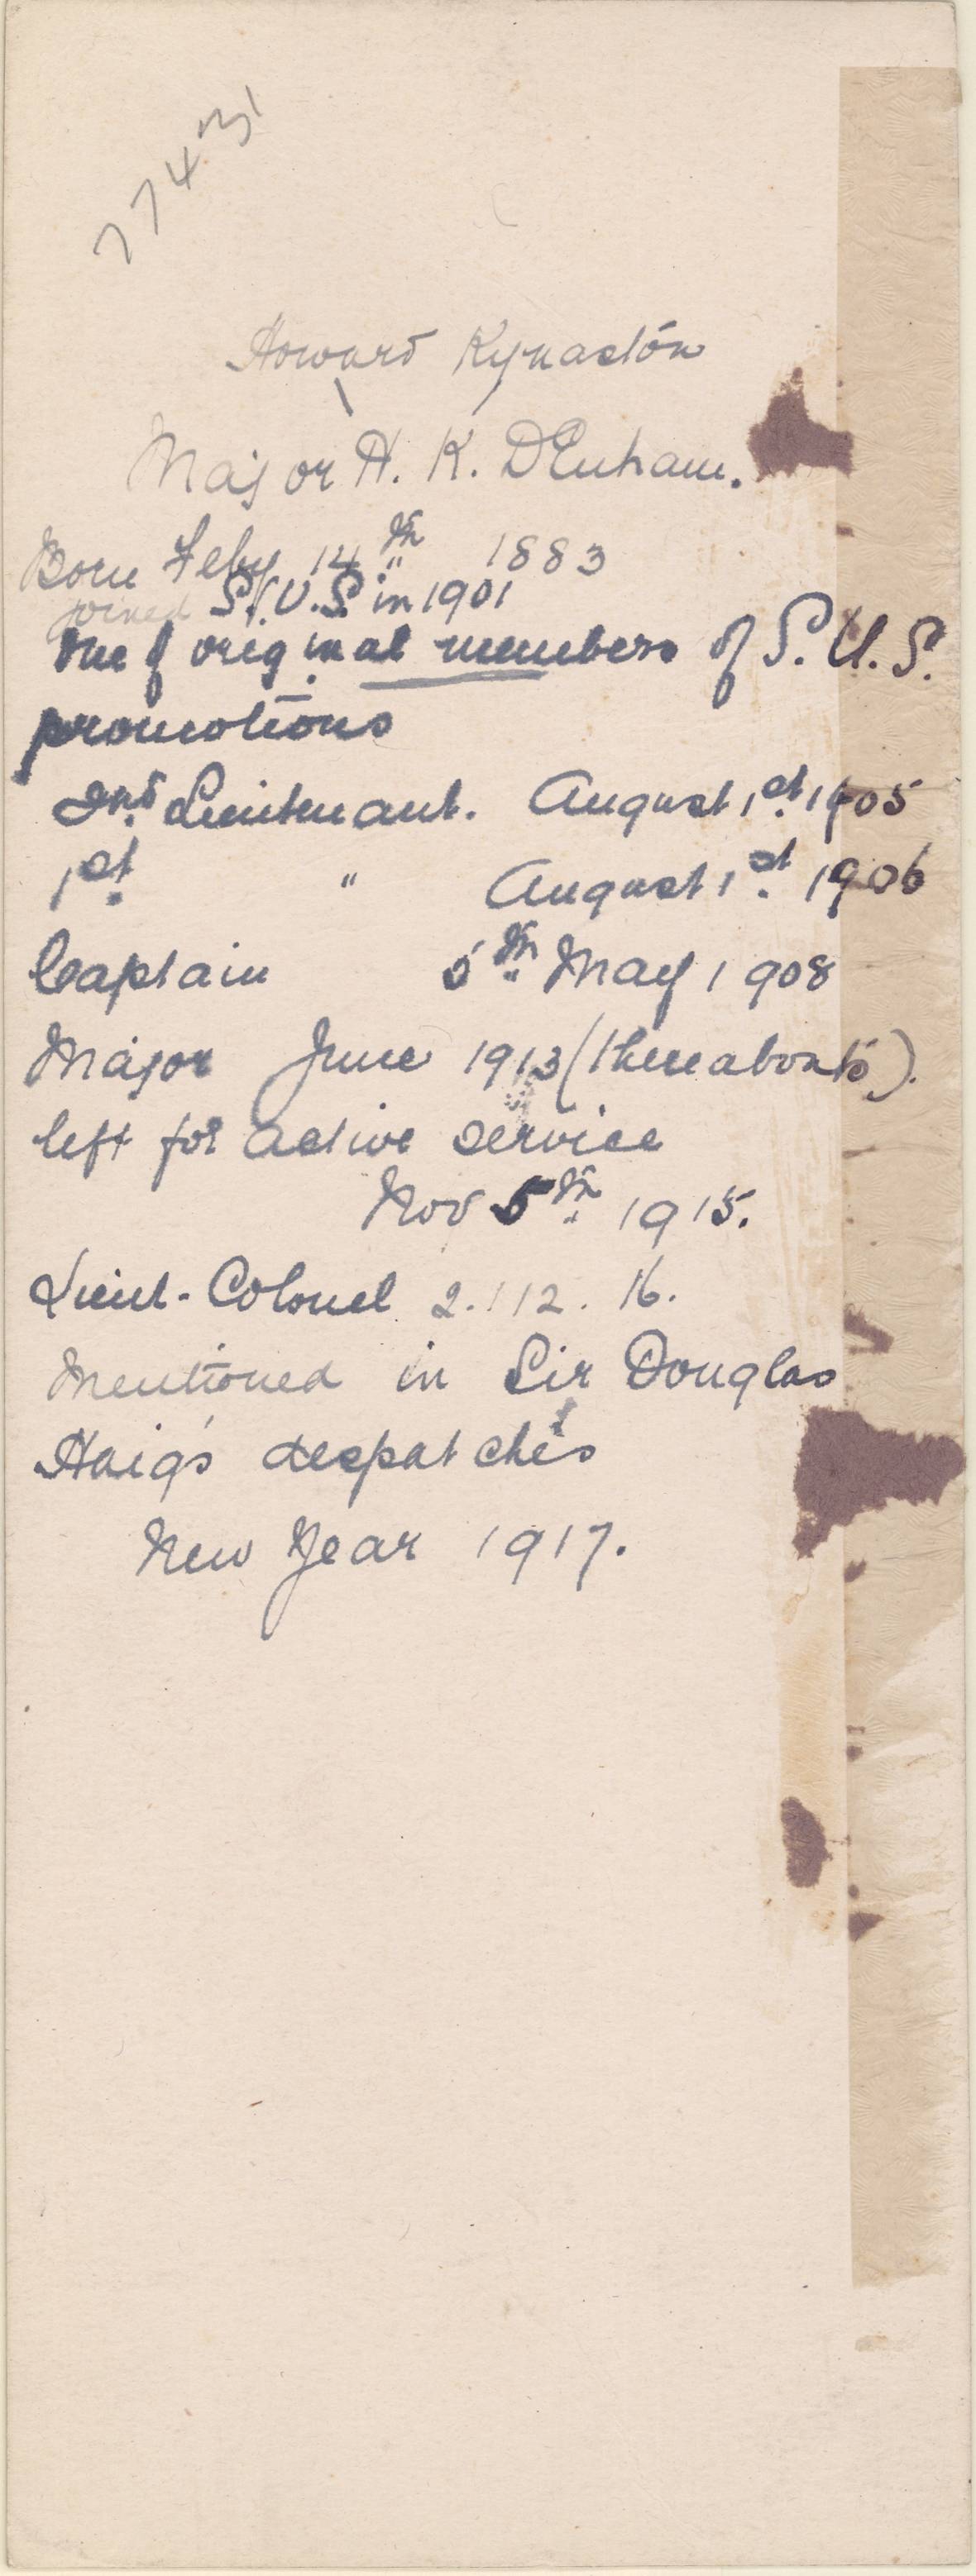 77431
Howard Kynaston
Major H. K. Denham.
Born Feby 14th 1883
joined S.U.S. in 1901
One of original members of S.U.S.
promotions
2nd Lieutenant. August 1st 1905
1st " August 1st 1906
Captain 5th May 1908
Major June 1913 (thereabouts).
left for active service
Nov 5th 1915.
Lieut-Colonel 2.12.16.
Mentioned in Sir Douglas
Haig's despatches
New Year 1917.